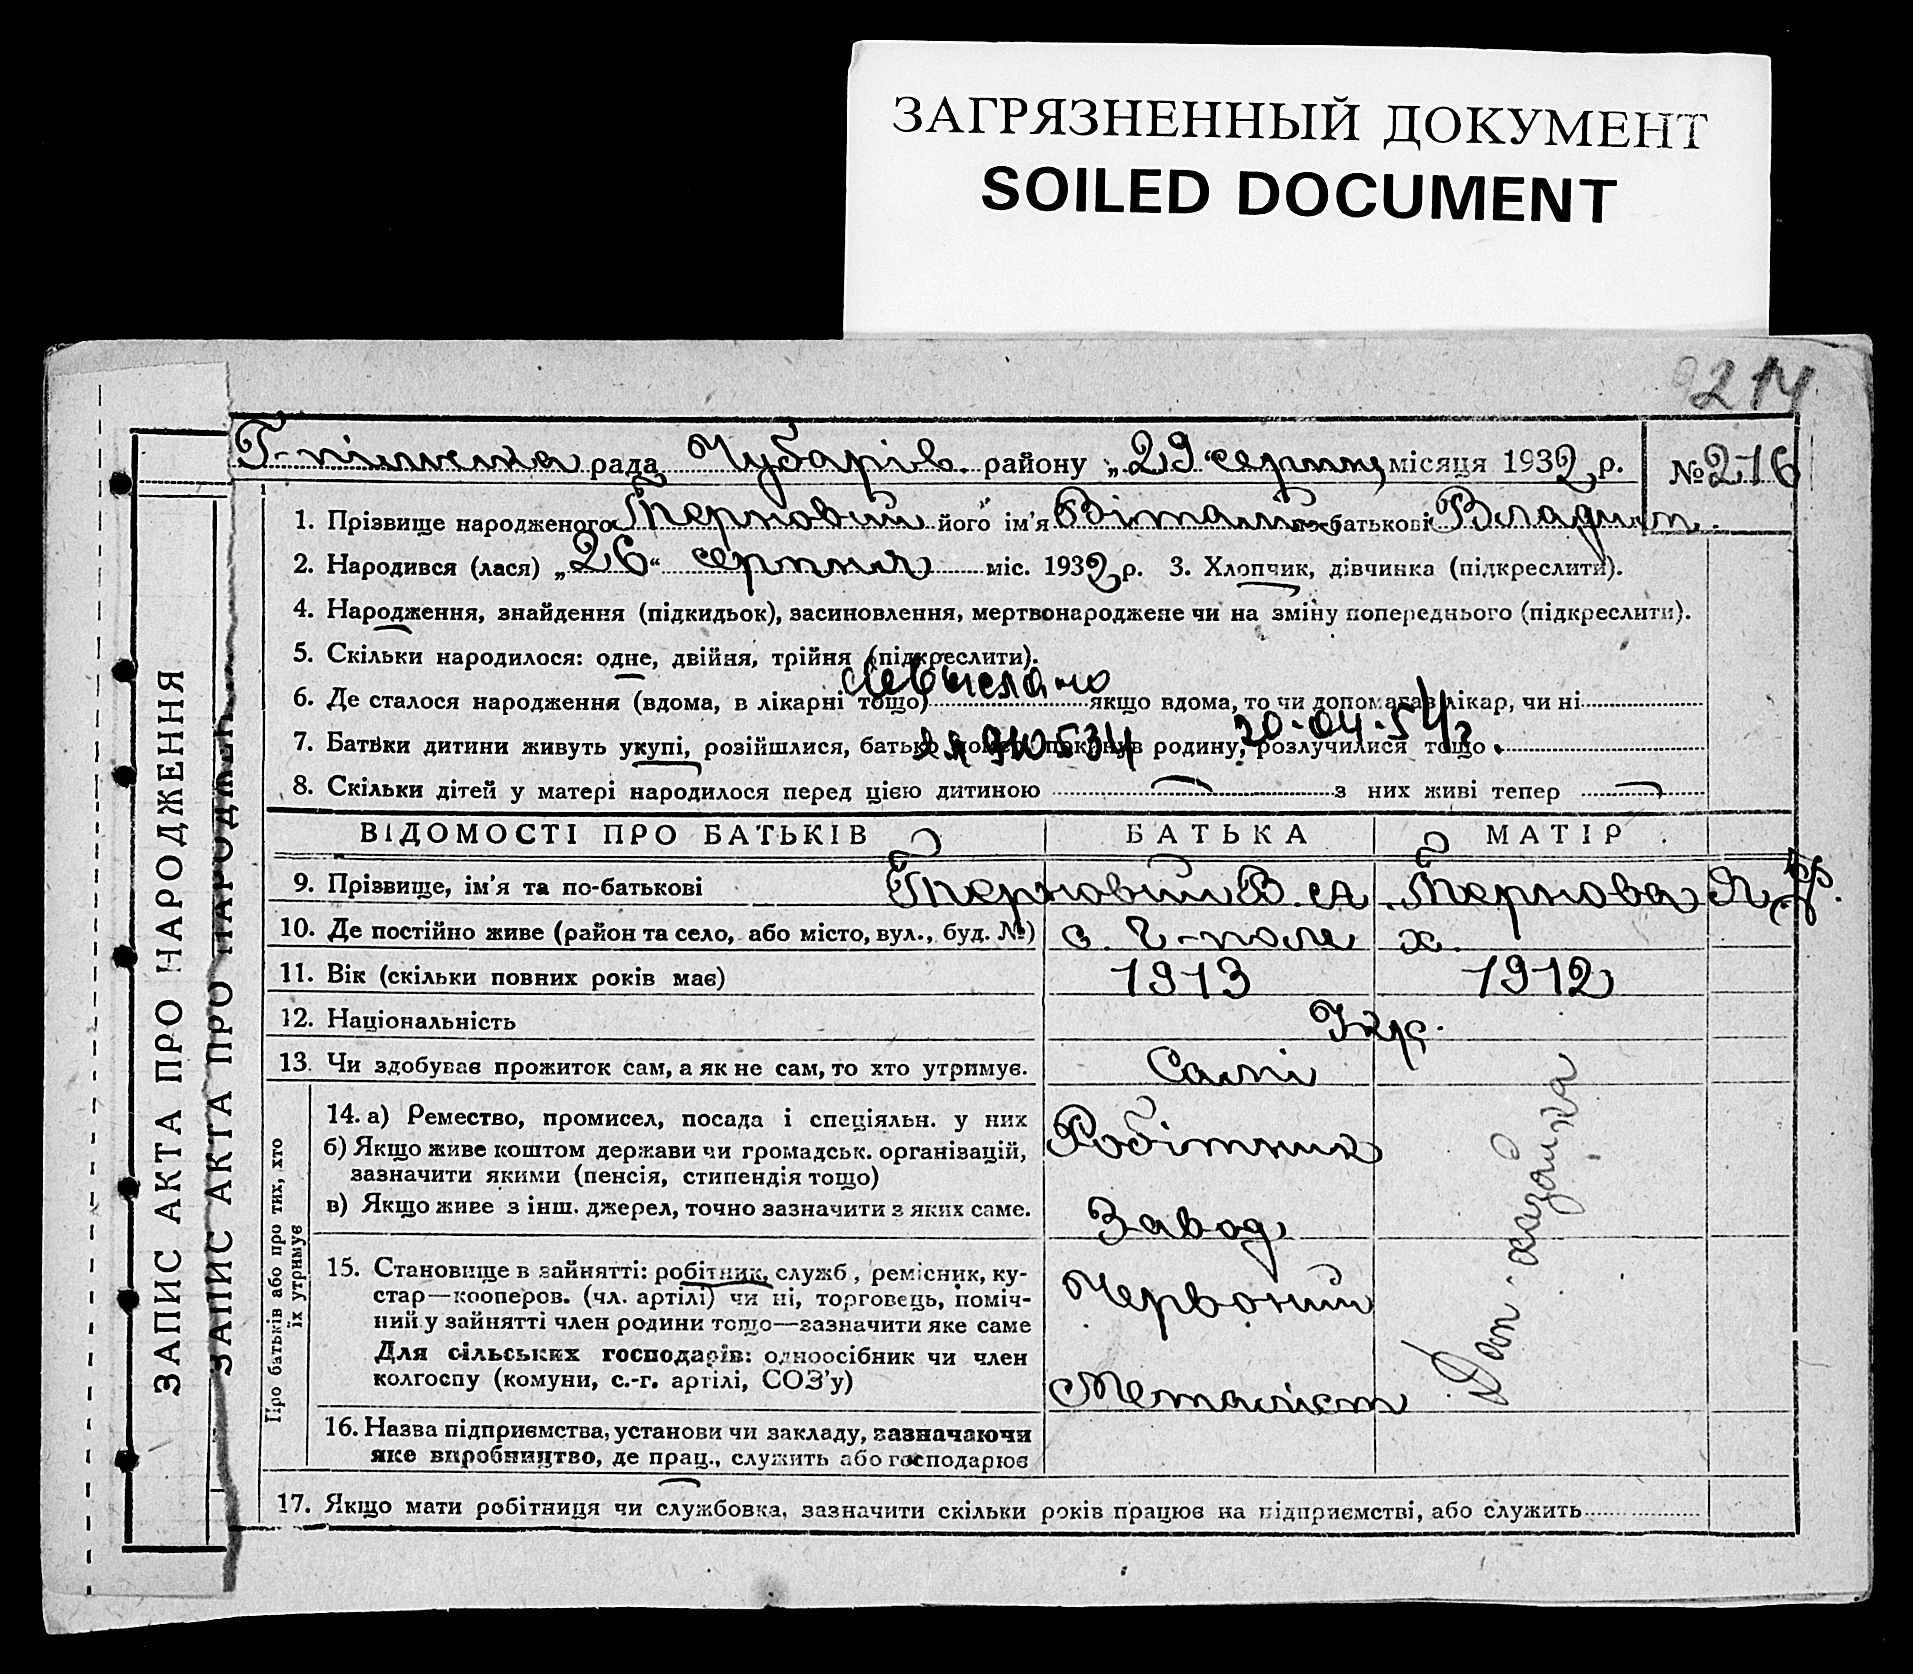 ЗАГРЯЗНЕННЫЙ ДОКУМЕНТ
SOILED DOCUMENT
214
Г-пільська рада Чубарів району „29“ серпня місяця 1932 р. № 216
1. Прізвище народженого Терновий його ім'я Віталій по-батькові Владим.
2. Народився (лася) „26“ серпня міс. 1932 р. 3. Хлопчик, дівчинка (підкреслити).
4. Народження, знайдення (підкидьок), засиновлення, мертвонароджене чи на зміну попереднього (підкреслити).
5. Скільки народилося: одне, двійня, трійня (підкреслити).
6. Де сталося народження (вдома, в лікарні тощо) якщо вдома, то чи допомагав лікар, чи ні
20-04-54г
7. Батьки дитини живуть укупі, розійшлися, батько помер, покинув родину, розлучилися тощо
8. Скільки дітей у матері народилося перед цією дитиною — з них живі тепер —
ВІДОМОСТІ ПРО БАТЬКІВ БАТЬКА МАТІР
9. Прізвище, ім'я та по-батькові Терновий В. А. Тернова
10. Де постійно живе (район та село, або місто, вул., буд. №) с. Г-поле х.
11. Вік (скільки повних років має) 1913 1912
12. Національність Укр.
13. Чи здобував прожиток сам, а як не сам, то хто утримує. Самі
Про батьків або про тих, хто
їх утримує
14. а) Ремество, промисел, посада і спеціяльн. у них
б) Якщо живе коштом держави чи громадськ. організацій, Робітник
зазначити якими (пенсія, стипендія тощо)
в) Якщо живе з інш. джерел, точно зазначити з яких саме. Завод
15. Становище в зайнятті: робітник, служб, ремісник, ку-
стар—кооперов. (чл. артілі) чи ні, торговець, поміч- Червоний
ний у зайнятті член родини тощо—зазначити яке саме
Для сільських господарів: одноосібник чи член
колгоспу (комуни, с.-г. артілі, СОЗ'у) Металіст
Дом-хазяйка
16. Назва підприємства, установи чи закладу, зазначаючи
яке виробництво, де прац., служить або господарює
17. Якщо мати робітниця чи службовка, зазначити скільки років працює на підприємстві, або служить
ЗАПИС АКТА ПРО НАРОДЖЕННЯ
ЗАПИС АКТА ПРО НАРОДЖЕН